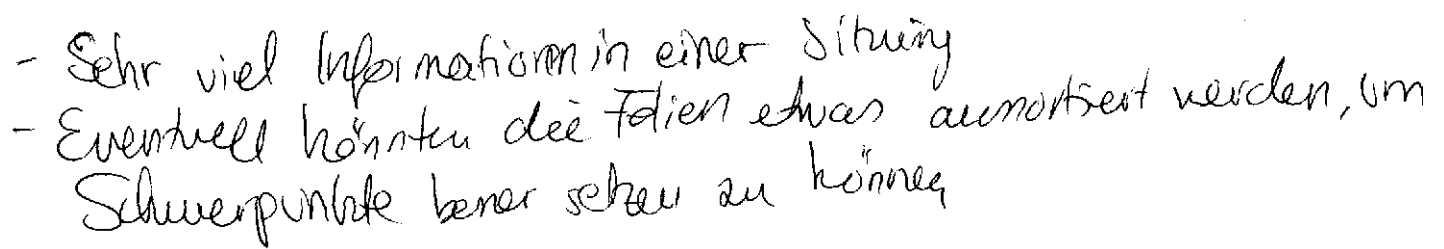 - Sehr viel Informationen in einer Sitzung
- Eventuell könnten die Folien etwas aussortiert werden, um
Schwerpunkte besser setzen zu können